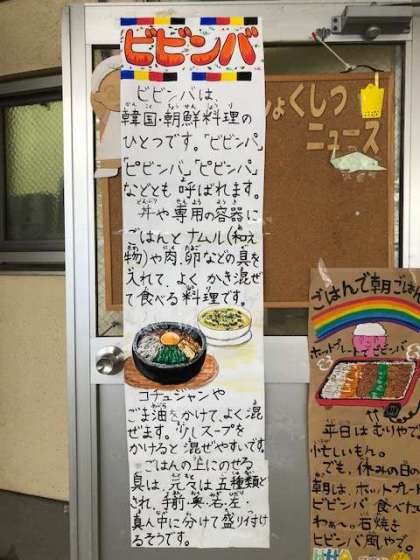 ビビンバ
ビビンバは
韓国・朝鮮料理の
ひとつです。「ビビンパ」
「ピビンバ」「ピビンパ」
などとも 呼ばれます。
丼や専用の容器に
ごはんとナムル(和え
物)や肉、卵などの具を
入れて、よく かき混ぜ
て食べる料理です。
コチュジャンや
ごま油をかけて、よく混
ぜます。少しスープを
かけると 混ぜやすいです。
ごはんの上にのせる
具は、元々は 五種類と
され、手前・奥・右・左・
真ん中に分けて盛り付け
るそうです。
しょくしつ
ニュース
ごはんで朝ごはん
ホットプレートでビビンバ
平日はむりやで
忙しいもん。
でも、休みの日の
朝は、ホットプレート
ビビンバ 食べたい
わぁ〜。石焼き
ビビンバ風やで。